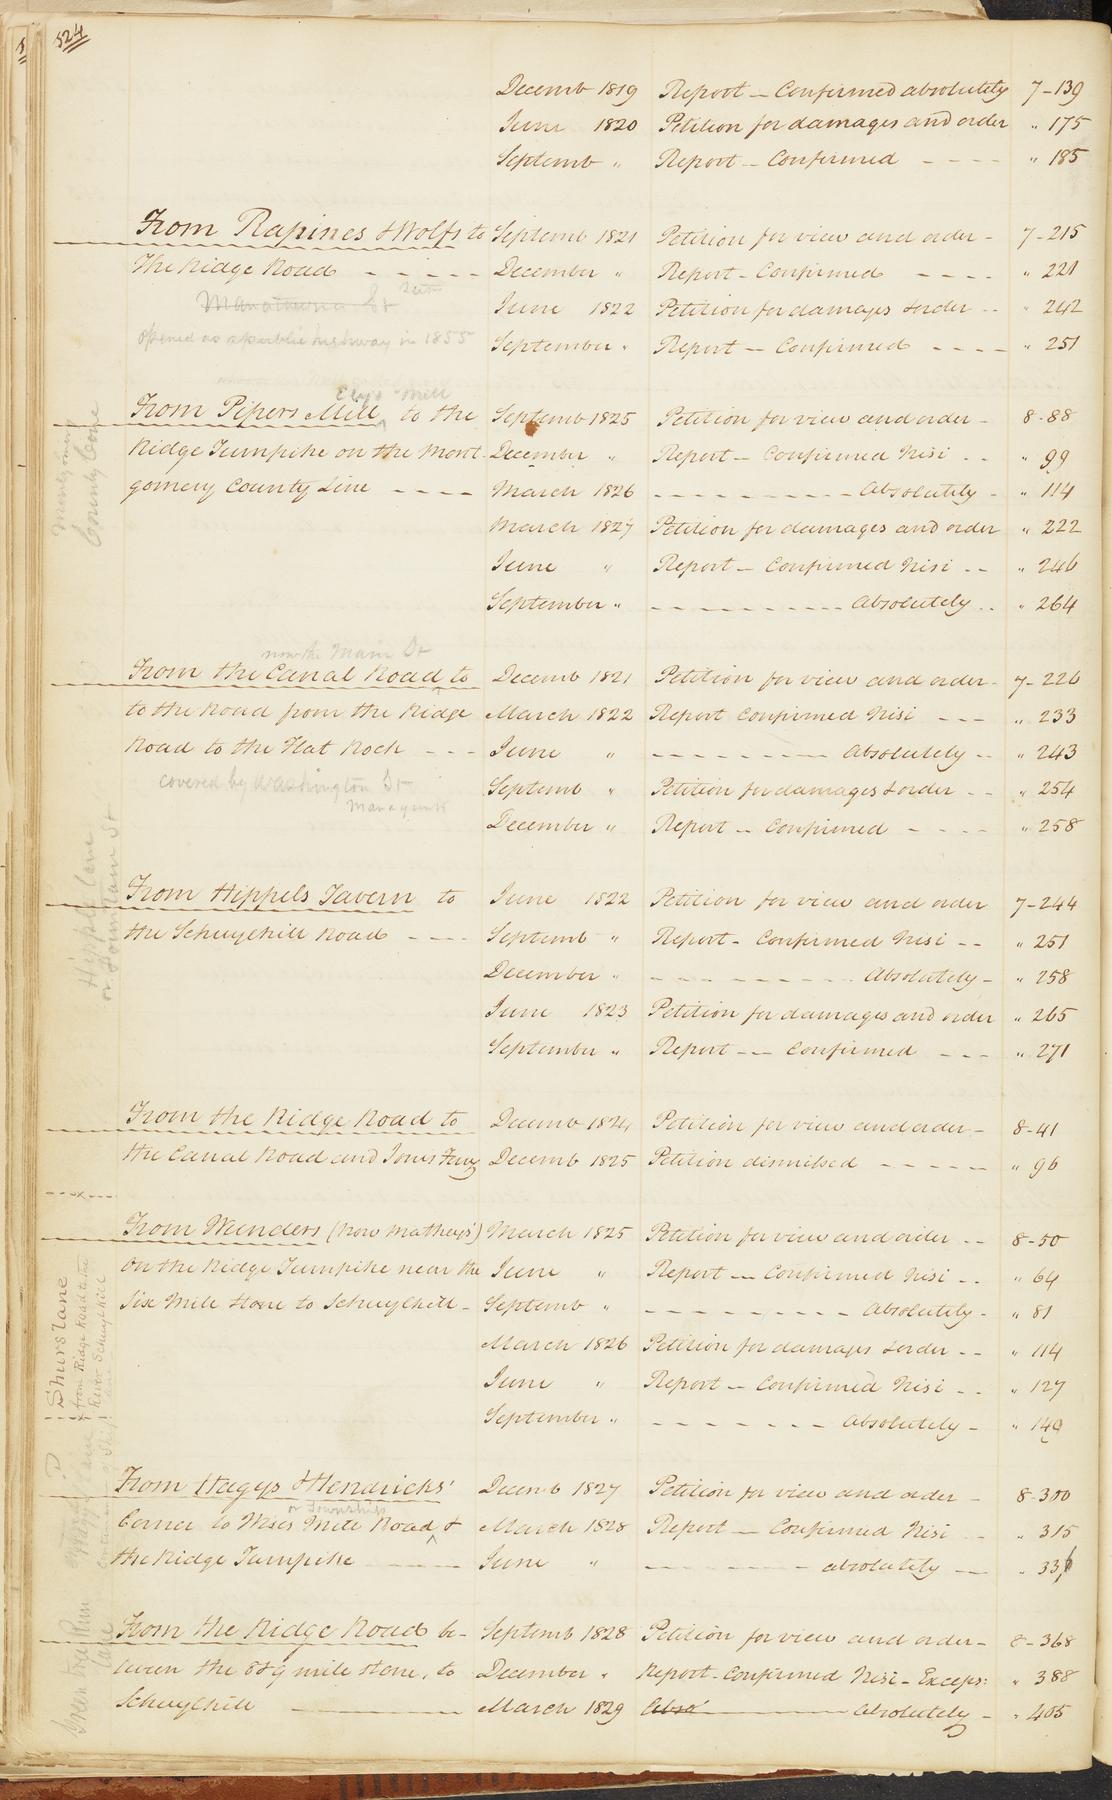 524
Decemb 1819 Report — Confirmed absolutely 7-139
June 1820 Petition for damages and order " 175
Septemb " Report — Confirmed - - - - " 185
From Rapines & Wolfs to Septemb 1821 Petition for view and order - 7-215
the Ridge Road - - - - - December " Report - Confirmed - - - - " 221
Manatawna St June 1822 Petition for damages & order - - " 242
opened as a public highway in 1855 September " Report — Confirmed - - - - " 251
Montgomery
County Line
Elys Mill
From Pipers Mill, to the Septemb 1825 Petition for view and order - 8-88
Ridge Turnpike on the Mont- December " Report — Confirmed Nisi - - " 99
gomery County Line - - - - March 1826 - - - - - - - - - Absolutely - " 114
March 1827 Petition for damages and order " 222
June " Report — Confirmed Nisi - - " 246
September " - - - - - - - - - - Absolutely - - " 264
now the Main St
From the Canal Road to Decemb 1821 Petition for view and order - 7-226
to the Road from the Ridge March 1822 Report Confirmed Nisi - - - " 233
Road to the Flat Rock - - - June " - - - - - - - - Absolutely - - " 243
covered by Washington St Septemb " Petition for damages & order - - " 254
Manayunk
December " Report — Confirmed - - - - " 258
Hipples Lane
or Fountain St
From Hippels Tavern to June 1822 Petition for view and order 7-244
the Schuylkill Road - - - - Septemb " Report - Confirmed Nisi - - " 251
December " - - - - - - - - - - Absolutely - " 258
June 1823 Petition for damages and order " 265
September " Report — - Confirmed - - - " 271
From the Ridge Road to Decemb 1824 Petition for view and order - 8-41
the Canal Road and Jones Ferry Decemb 1825 Petition dismissed - - - - - " 96
From Wunders (now Matheys') March 1825 Petition for view and order - - 8-50
on the Ridge Turnpike near the June " Report — Confirmed Nisi - - " 64
Six Mile Stone to Schuylkill - Septemb " - - - - - - - - - Absolutely - " 81
March 1826 Petition for damages & order - - " 114
June " Report — Confirmed Nisi - - " 127
September " - - - - - - - Absolutely - " 149
Shurs Lane
from Ridge Road to the
River Schuylkill
From Hagys & Hendricks' Decemb 1827 Petition for view and order - 8-300
or Township
Corner to Wises Mill Road & March 1828 Report — Confirmed Nisi - - " 315
the Ridge Turnpike - - - - June " - - - - - - - absolutely — " 336
Green tree Run
Lane
From the Ridge Road be- Septemb 1828 Petition for view and order - 8-368
tween the 8 & 9 mile stone, to December " Report - Confirmed Nisi - Exceps: " 388
Schuylkill ———— March 1829 Abso ———— Absolutely - " 405